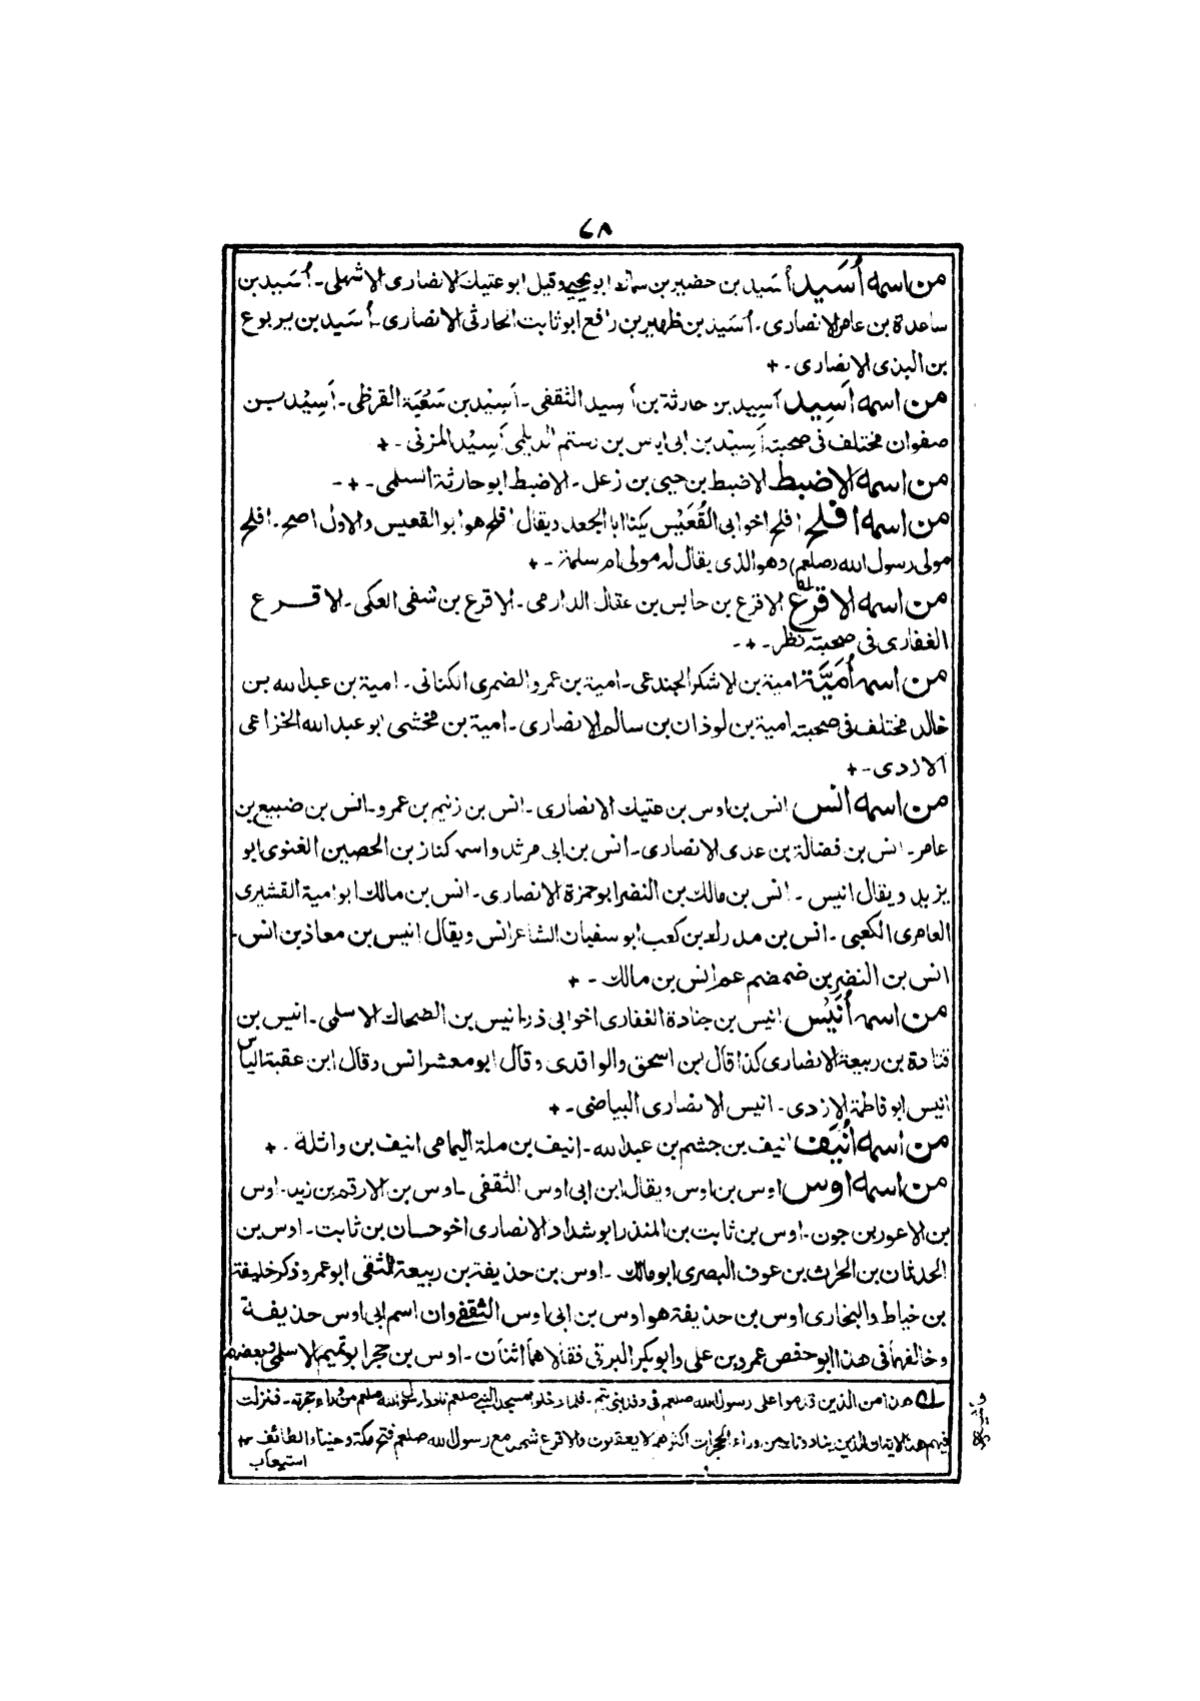 ٦٨
من اسمه أُسَيد أُسَيد بن حضير بن سماك ابو يحيى وقيل ابو عتيك الانصارى الاشهلى ـ أُسَيد بن
ساعدة بن عامر الانصارى ـ أُسَيد بن ظهير بن رافع ابو ثابت الحارثى الانصارى ـ أُسَيد بن يربوع
بن البذى الانصارى ـ +
من اسمه أَسِيد أَسِيد بن حارثة بن أسيد الثقفى ـ أَسِيد بن سَعْيَة القرظى ـ أَسِيْد بن
صفوان مختلف فى صحبته أَسِيْد بن ابى اياس بن رستم الديلى أَسِيْد المزنى ـ +
من اسمه الاضبط الاضبط بن حيى بن زعل ـ الاضبط ابو حارثة السلمى ـ + ـ
من اسمه افلح افلح اخو ابى القُعَيْس يكنا ابا الجعد ويقال افلح هو ابو القعيس والاول اصح ـ افلح
مولى رسول الله (صلعم) وهو الذى يقال له مولى ام سلمة ـ +
من اسمه الاقرع الاقرع بن حابس بن عقال الدارمى ـ الاقرع بن شفى العكى ـ الاقرع
الغفارى فى صحبته نظر ـ + ـ
من اسمه أُمَيَّة امية بن الاشكر الجندعى ـ امية بن عمرو الضمرى الكنانى ـ امية بن عبد الله بن
خالد مختلف فى صحبته امية بن لوذان بن سالم الانصارى ـ امية بن مخشى ابو عبد الله الخزاعى
الازدى ـ +
من اسمه انس انس بن اوس بن عتيك الانصارى ـ انس بن زنيم بن عمرو ـ انس بن ضبيع بن
عامر ـ انس بن فضالة بن عدى الانصارى ـ انس بن ابى مرثد واسمه كناز بن الحصين الغنوى ابو
يزيد ويقال انيس ـ انس بن مالك بن النضر ابو حمزة الانصارى ـ انس بن مالك ابو امية القشيرى
العامرى الكعبى ـ انس بن مدرك بن كعب ابو سفيان الشاعر انس ويقال انيس بن معاذ بن انس ـ
انس بن النضر بن ضمضم عم انس بن مالك ـ +
من اسمه أُنَيْس انيس بن جنادة الغفارى اخو ابى ذر انيس بن الضحاك الاسلمى ـ انيس بن
قتادة بن ربيعة الانصارى كذا قال بن اسحق والواقدى وقال ابو معشر انس وقال ابن عقبة الياس
انيس ابو فاطمة الازدى ـ انيس الانصارى البياضى ـ +
من اسمه أُنَيَف انيف بن جشم بن عبد الله ـ انيف بن ملة اليمامى انيف بن واثلة . +
من اسمه اوس اوس بن اوس ويقال ابن ابى اوس الثقفى ـ اوس بن الارقم بن زيد ـ اوس
بن الاعور بن جون ـ اوس بن ثابت بن المنذر ابو شداد الانصارى اخو حسان بن ثابت ـ اوس بن
الحدثان بن الحارث بن عوف البصرى ابو مالك ـ اوس بن حذيفة بن ربيعة الثقفى ابو عمرو ذكر خليفة
بن خياط والبخارى اوس بن حذيفة هو اوس بن ابى اوس الثقفى وان اسم ابى اوس حذيفة
وخالفهما فى هذا ابو حفص عمرو بن على وابو بكر البرقى فقالا هما اثنان ـ اوس بن حجر ابو تميم الاسلمى وبعضهم
له هذا من الذين قدموا على رسول الله صلعم فى وفد بنى تميم ـ فلما دخلوا مسجد النبى صلعم نادوا رسول الله صلعم من وراء حجرته ـ فنزلت
فيهم هذه الاية ان الذين ينادونك من وراء الحجرات اكثرهم لا يعقلون والاقرع شهد مع رسول الله صلعم فتح مكة وحنينا والطائف +
استيعاب